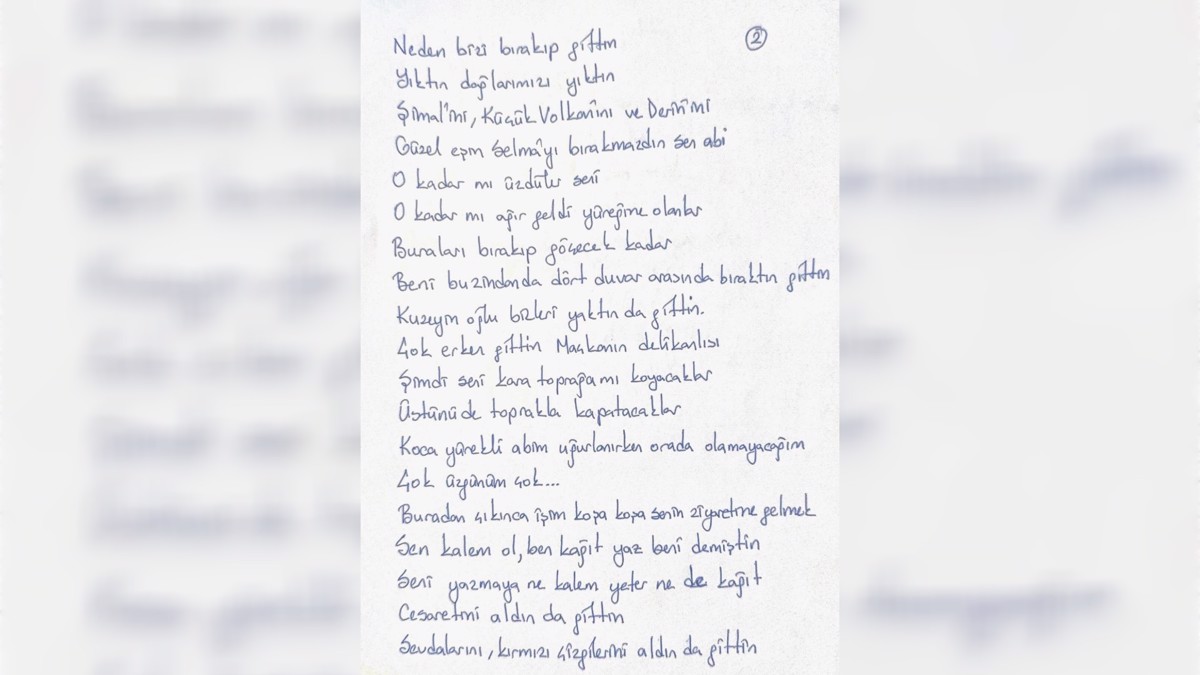 Neden bizi bırakıp gittin
②
Yıktın dağlarımızı yıktın
Şimal'ini, Küçük Volkan'ını ve Derin'ini
Güzel eşin Selma'yı bırakmazdın sen abi
O kadar mı üzdüler seni
O kadar mı ağır geldi yüreğine olanlar
Buraları bırakıp göçecek kadar
Beni bu zindanda dört duvar arasında bıraktın gittin
Kuzeyin oğlu bizleri yaktın da gittin.
Çok erken gittin Maçkanın delikanlısı
Şimdi seni kara toprağa mı koyacaklar
Üstünü de toprakla kapatacaklar
Koca yürekli abim uğurlanırken orada olamayacağım
Çok üzgünüm çok...
Buradan çıkınca işim koşa koşa senin ziyaretine gelmek
Sen kalem ol, ben kağıt yaz beni demiştin
Seni yazmaya ne kalem yeter ne de kağıt
Cesaretini aldın da gittin
Sevdalarını, kırmızı çizgilerini aldın da gittin